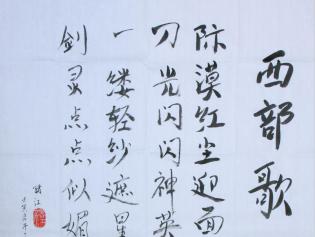 西部歌
际漠红尘迎面
刀光闪闪神英
一缕轻纱遮星
剑灵点点似媚